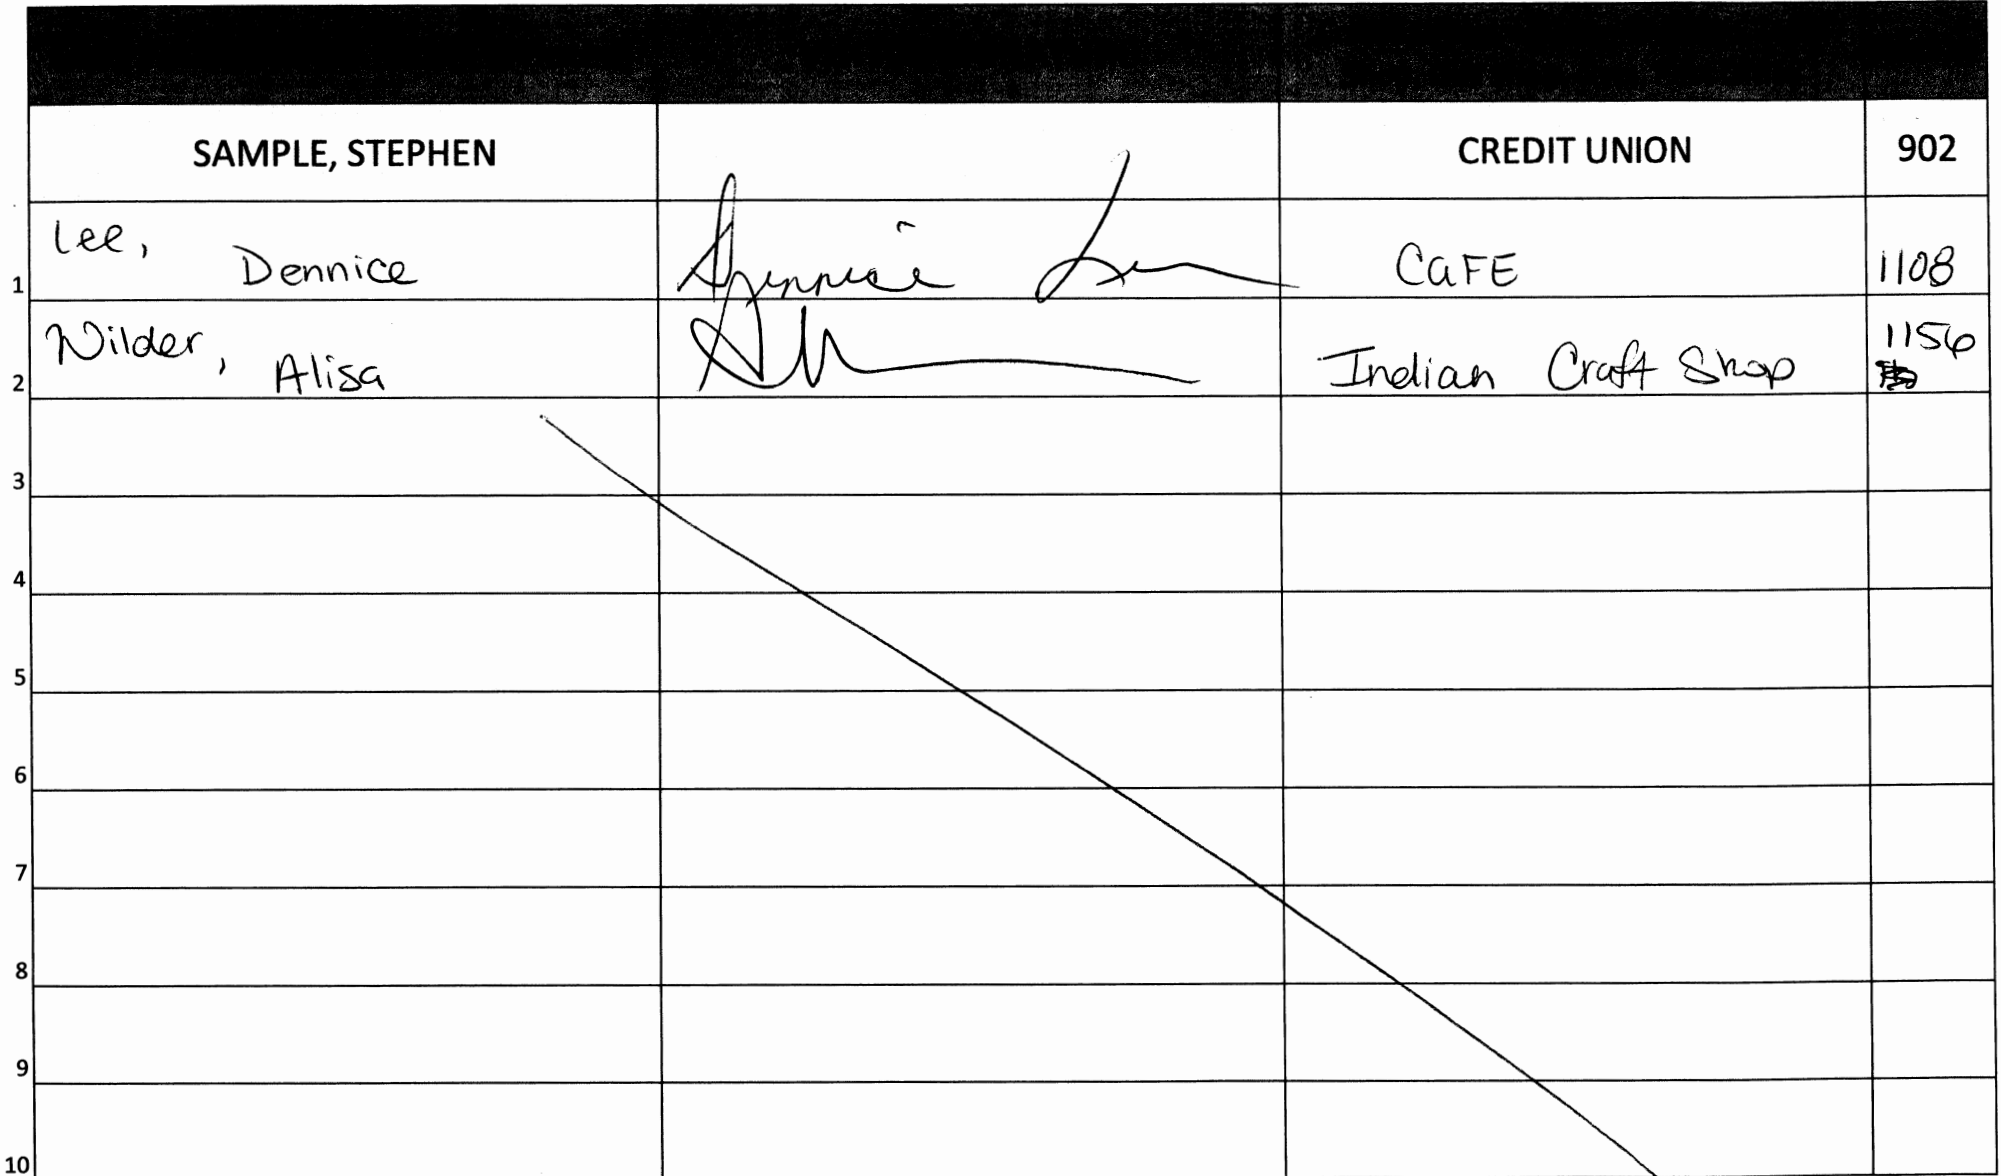 SAMPLE, STEPHEN CREDIT UNION 902
1 Lee, Dennice Dennice Lee CAFE 1108
2 Wilder, Alisa Indian Craft Shop 1156
3
4
5
6
7
8
9
10